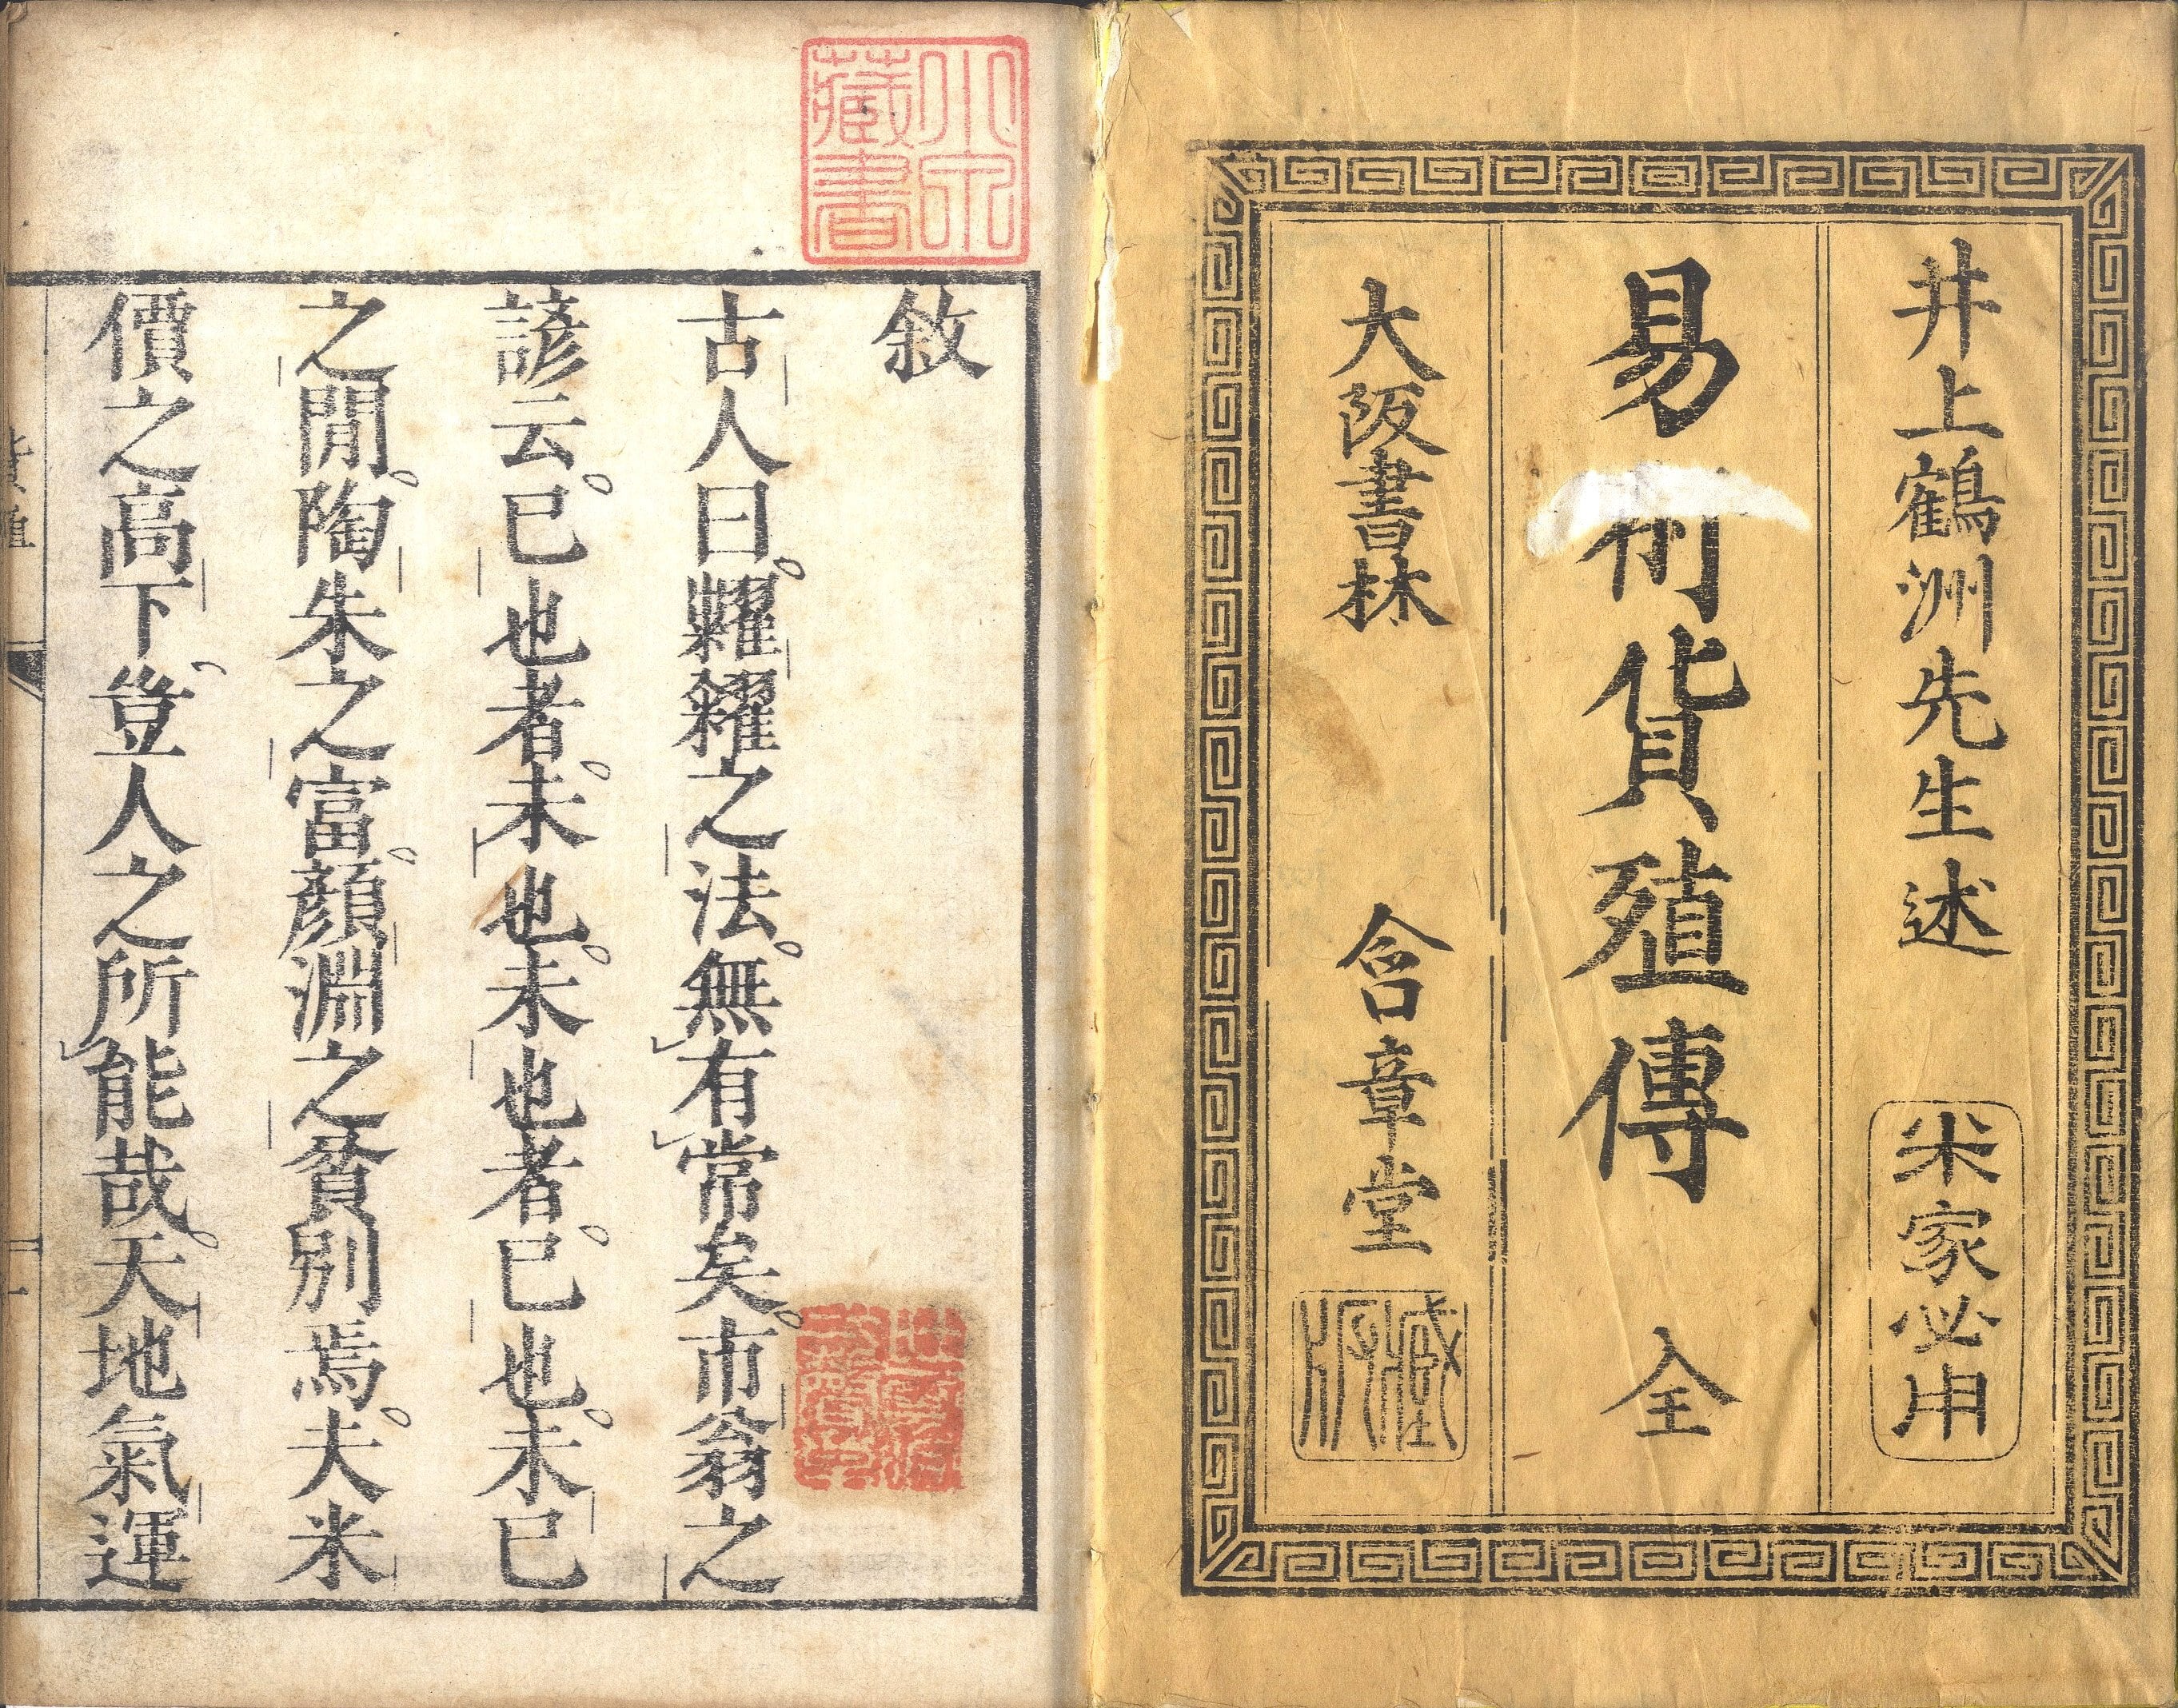 井上鶴洲先生述 米家必用
易術貨殖傳 全
大阪書林 含章堂 藏版
藏書
敘
古人曰。糶糴之法。無有常矣。市翁之
諺云。已也者。未也。未也者。已也。未已
之閒。陶朱之富。顏淵之貧別焉。夫米
價之高下。豈人之所能哉。天地氣運